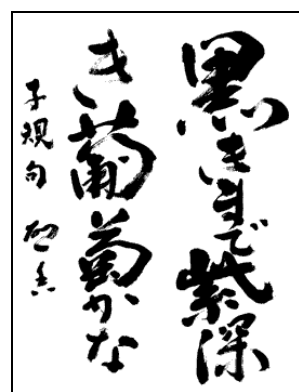 黒きまで紫深
き葡萄かな
子規句